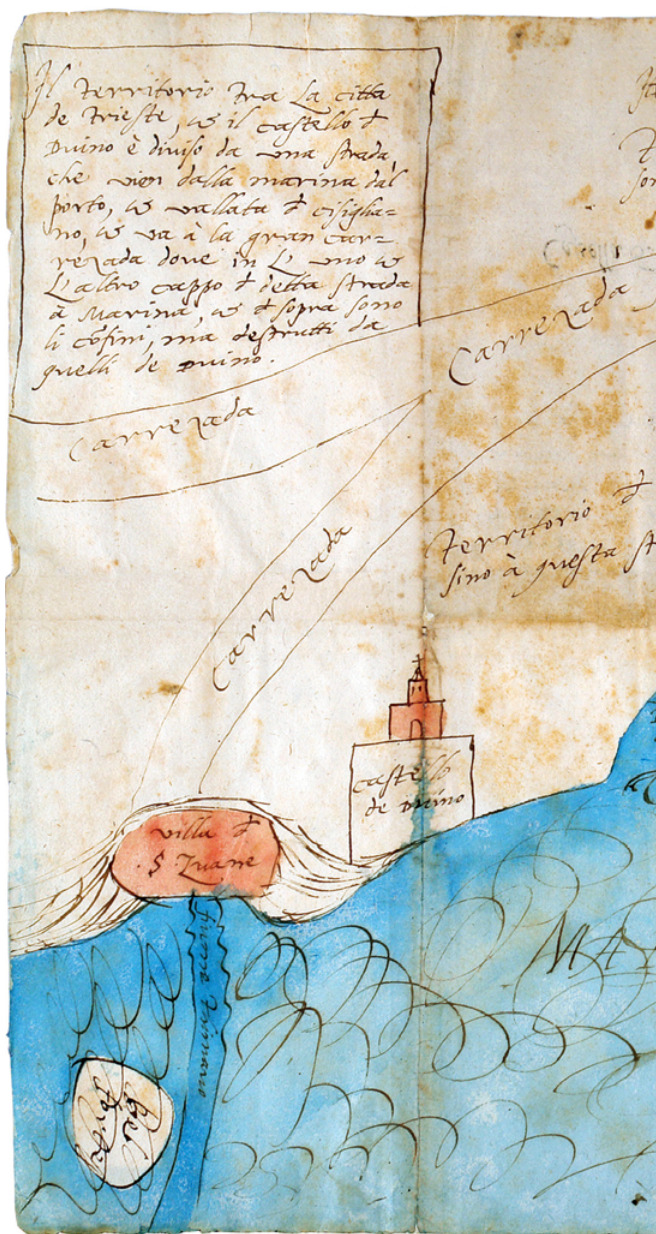 Il Territorio tra La citta
de trieste, & il castello d
Duino è diviso da una strada,
che vien dalla marina dal
porto, & vallata d cisiglia=
no, & va à la gran car=
rezada dove in L uno &
L'altro cappo d detta strada
à Marina, & d sopra sono
li cōfini, ma destrutti da
quelli de Duino.
Carrezada
Carrezada
Carrezada
Territorio d
sino à questa st
castello
de Duino
villa d
S Zuane
fiume Timavo
MA